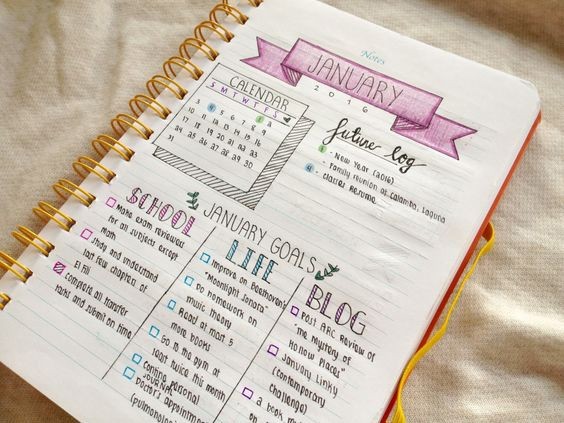 Notes
JANUARY
2016
CALENDAR
S M T W T F S
1 2
3 4 5 6 7 8 9
10 11 12 13 14 15 16
17 18 19 20 21 22 23
24 25 26 27 28 29 30
31
future log
1 - New Year (2016)
- Family reunion at Calamba, Laguna
4 - Classes Resume
JANUARY GOALS
SCHOOL
Make exam reviewers
for all subjects except
Math
Study and understand
last few chapters of
El Fili
Complete all transfer
tasks and submit on time
LIFE
Improve on Beethoven's
"Moonlight Sonata"
Do homework on
music theory
Read at least 5
more books
Go to the gym at
least twice this month
continue personal
JOURNAL
Doctor's appointment
(pulmonologist)
BLOG
Post ARC Review of
"The Mystery of
Hollow Places"
January Linky
(Contemporary
Challenge)
a book